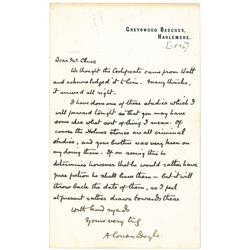 GREYSWOOD BEECHES,
HASLEMERE.
[1896]
Dear Mr McClure
We thought the Certificate came from Watt
and acknowledged it to him. Many thanks,
it arrived all right.
I have done one of these studies which I
will forward tonight so that you may have
some idea what sort of thing I mean. Of
course the Holmes stories are all criminal
studies, and your brother was very keen on
my doing them. If on seeing this he
determines however that he would rather have
pure fiction he shall have them – but it will
throw back the date of them, as I feel
at present rather drawn towards these
With kind regards
Yours very truly
A Conan Doyle